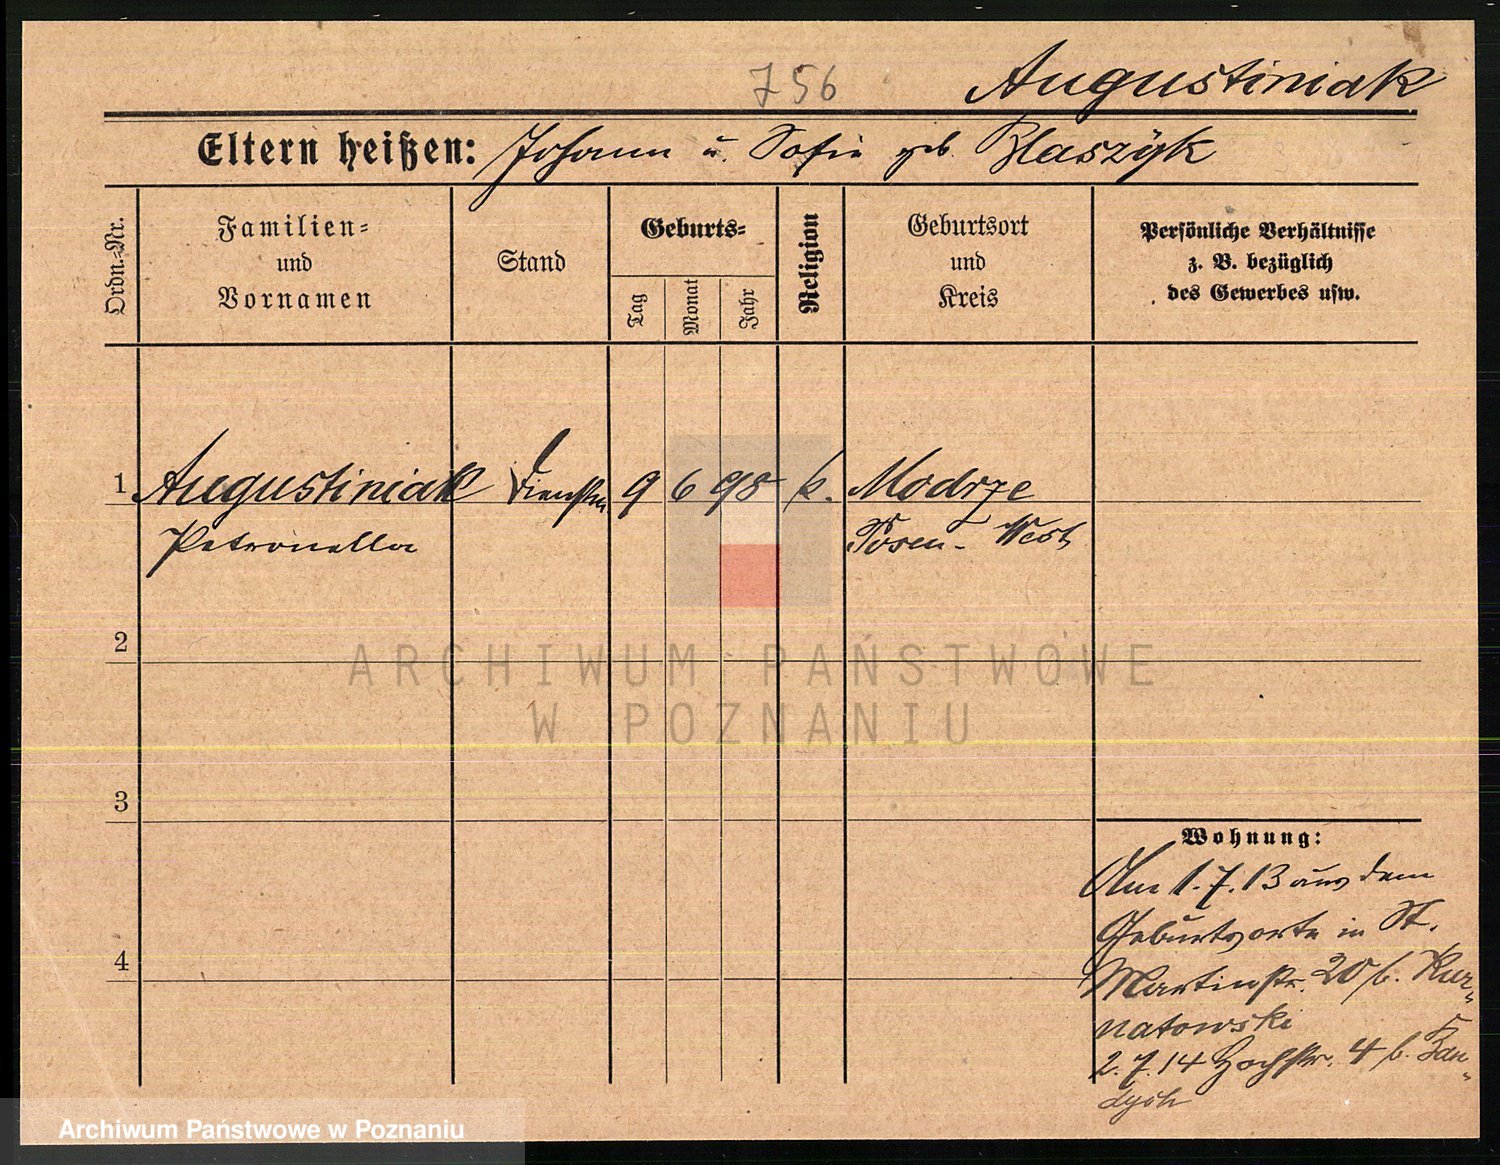 756 Augustiniak
Eltern heißen: Johann u. Sofie geb. Blaszyk
Ordn.-Nr.
Familien-
und
Vornamen
Stand
Geburts-
Tag
Monat
Jahr
Religion
Geburtsort
und
Kreis
Persönliche Verhältnisse
z. B. bezüglich
des Gewerbes usw.
1 Augustiniak 9 6 98 k. Modrze
Petronella Posen-West
2
3
4
Wohnung:
Am 1.7.13 aus dem
Geburtsorte in St.
Martinstr. 20 b. Kur-
natowski
2.7.14 Hochstr. 4 b.
ARCHIWUM PAŃSTWOWE
W POZNANIU
Archiwum Państwowe w Poznaniu